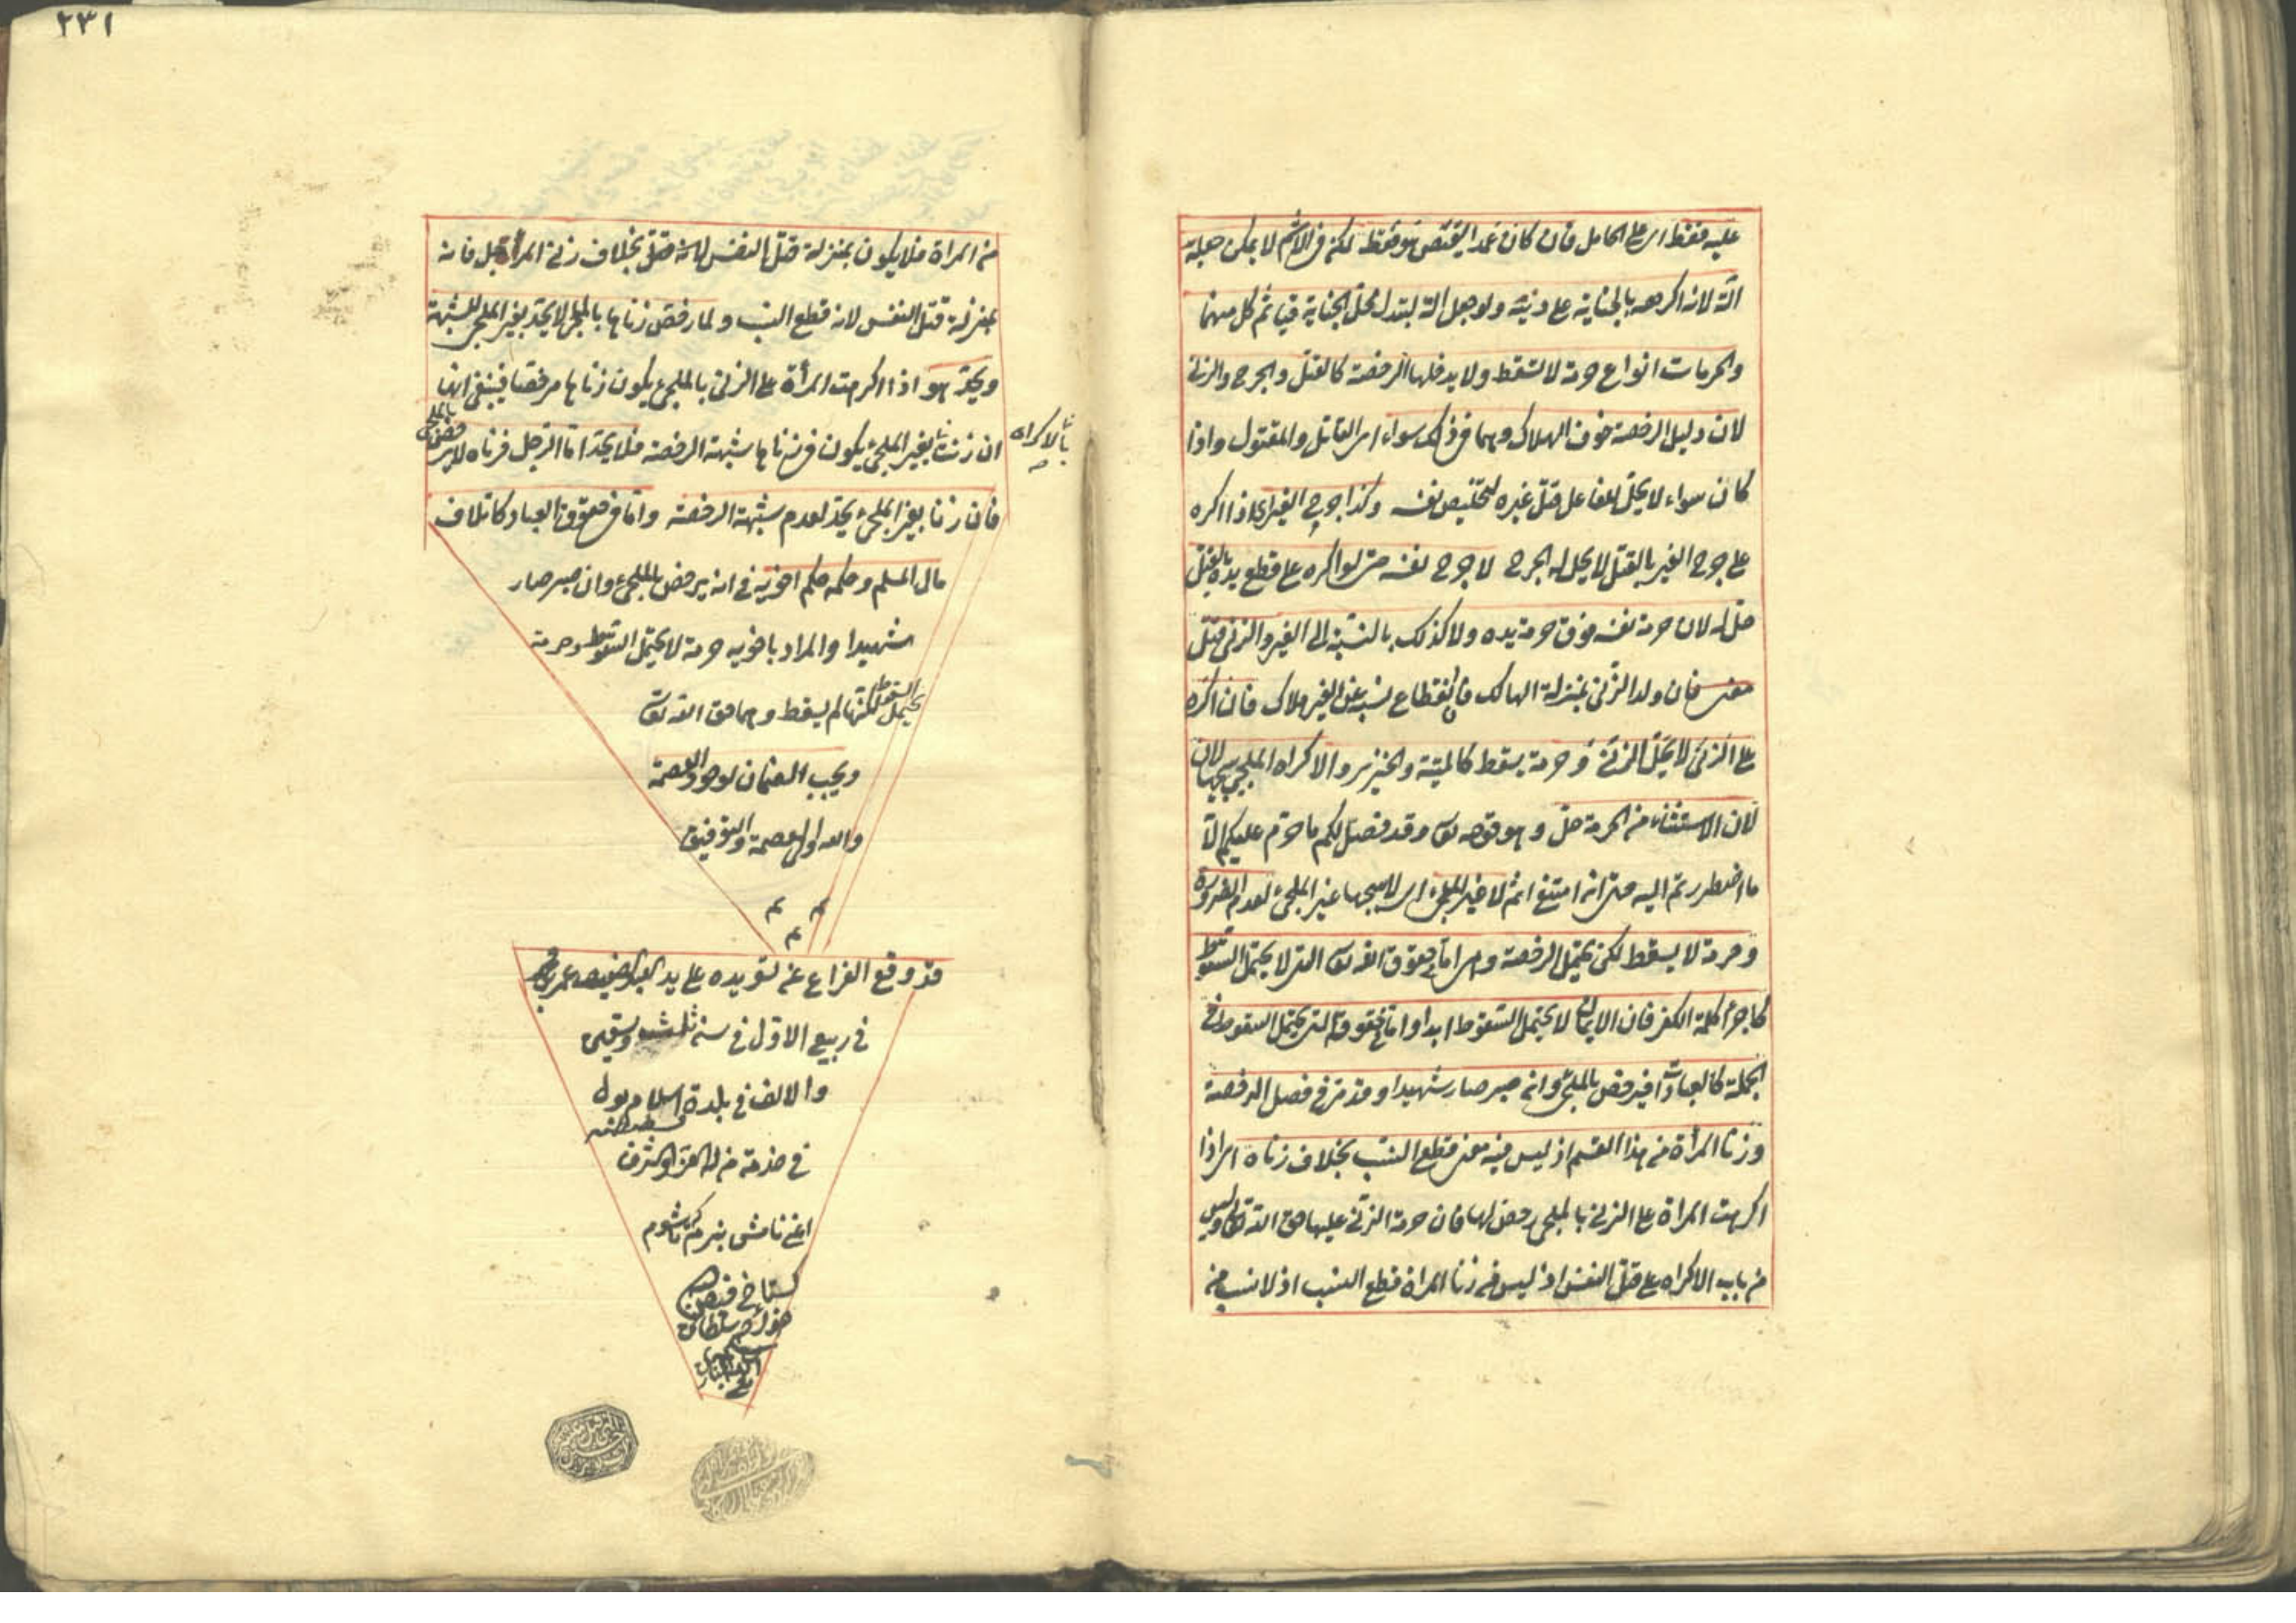 عليه فقط اى على الحامل فان كان عمدا يقتص هو فقط لكن فى الاثم لا يمكن جعله
آلة لانه اكرهه بالجناية على دينه ولو جعل آلة لتبدل محل الجناية فيأثم كل منهما
والحرمات انواع حرمة لا تسقط ولا يدخلها الرخصة كالقتل والجرح والزنى
لان دليل الرخصة خوف الهلاك وهما فى ذلك سواء اى القاتل والمقتول واذا
كان سواء لا يحل للفاعل قتل غيره لتخليص نفسه وكذا جرح الغير اى اذا اكره
على جرح الغير بالقتل لا يحل له الجرح لا جرح نفسه حتى لو اكره على قطع يده بالقتل
حل له لان حرمة نفسه فوق حرمة يده ولا كذلك بالنسبة الى الغير والزنى قتل
معنى فان ولد الزنى بمنزلة الهالك فانقطاع نسبه عن الغير هلاك فان اكره
على الزنى لا يحل الزنى وحرمة يسقط كالميتة والخنزير والاكراه الملجئ يبيحها لان
لان الاستثناء من الحرمة حل وهو قوله تعالى وقد فصل لكم ما حرم عليكم الا
ما اضطررتم اليه حتى انه امتنع اثم لا غير الملجئ اى لا يبيحها غير الملجئ لعدم الضرورة
وحرمة لا يسقط لكن يحتمل الرخصة وهى اما فى حقوق الله تعالى التى لا يحتمل السقوط
كاجراء كلمة الكفر فان الايمان لا يحتمل السقوط ابدا واما فى حقوقه التى يحتمل السقوط فى
الجملة كالعبادات فيرخص بالملجئ وان صبر صار شهيدا وقد مر فى فصل الرخصة
وزنا المرأة من هذا القسم اذ ليس فيه معنى قطع النسب بخلاف زناه اى اذا
اكرهت المراة على الزنى بالملجئ رخص لها فان حرمة الزنى عليها حق الله تعالى وليس
من باب الاكراه على قتل النفس اذ ليس فى زنا المراة قطع النسب اذ لا نسب من
٢٣١
من المراة فلا يكون بمنزلة قتل النفس لانه قتل بخلاف زنى المرأة بل فانه
بمنزلة قتل النفس لانه قطع النسب ولما رخص زناها بالملجئ لا يحد بغير الملجئ للشبهة
ويحد هو اذا اكرهت المرأة على الزنى بالملجئ يكون زناها مرخصا فينبغى انها
ان زنت بغير الملجئ يكون فى زناها شبهة الرخصة فلا يحد اما الرجل فزناه لا يرخص بالملجئ
بالاكراه
فان زنا بغير الملجئ يحد لعدم شبهة الرخصة واما فى حقوق العباد كاتلاف
مال المسلم وحكمه حكم اخويه فى انه يرخص بالملجئ وان صبر صار
شهيدا والمراد باخويه حرمة لا يحتمل السقوط وحرمة
يحتمل السقوط لكنها لم يسقط وهما حق الله تعالى
ويجب الضمان لوجود العصمة
والله ولى العصمة والتوفيق
م م
م
قد وقع الفراغ عن تسويده على يد العبد الضعيف عمر
فى ربيع الاول فى سنة ثلث وسبعين
والالف فى بلدة اسلامبول
فى خدمة من له العز والشرف
اعنى نامش